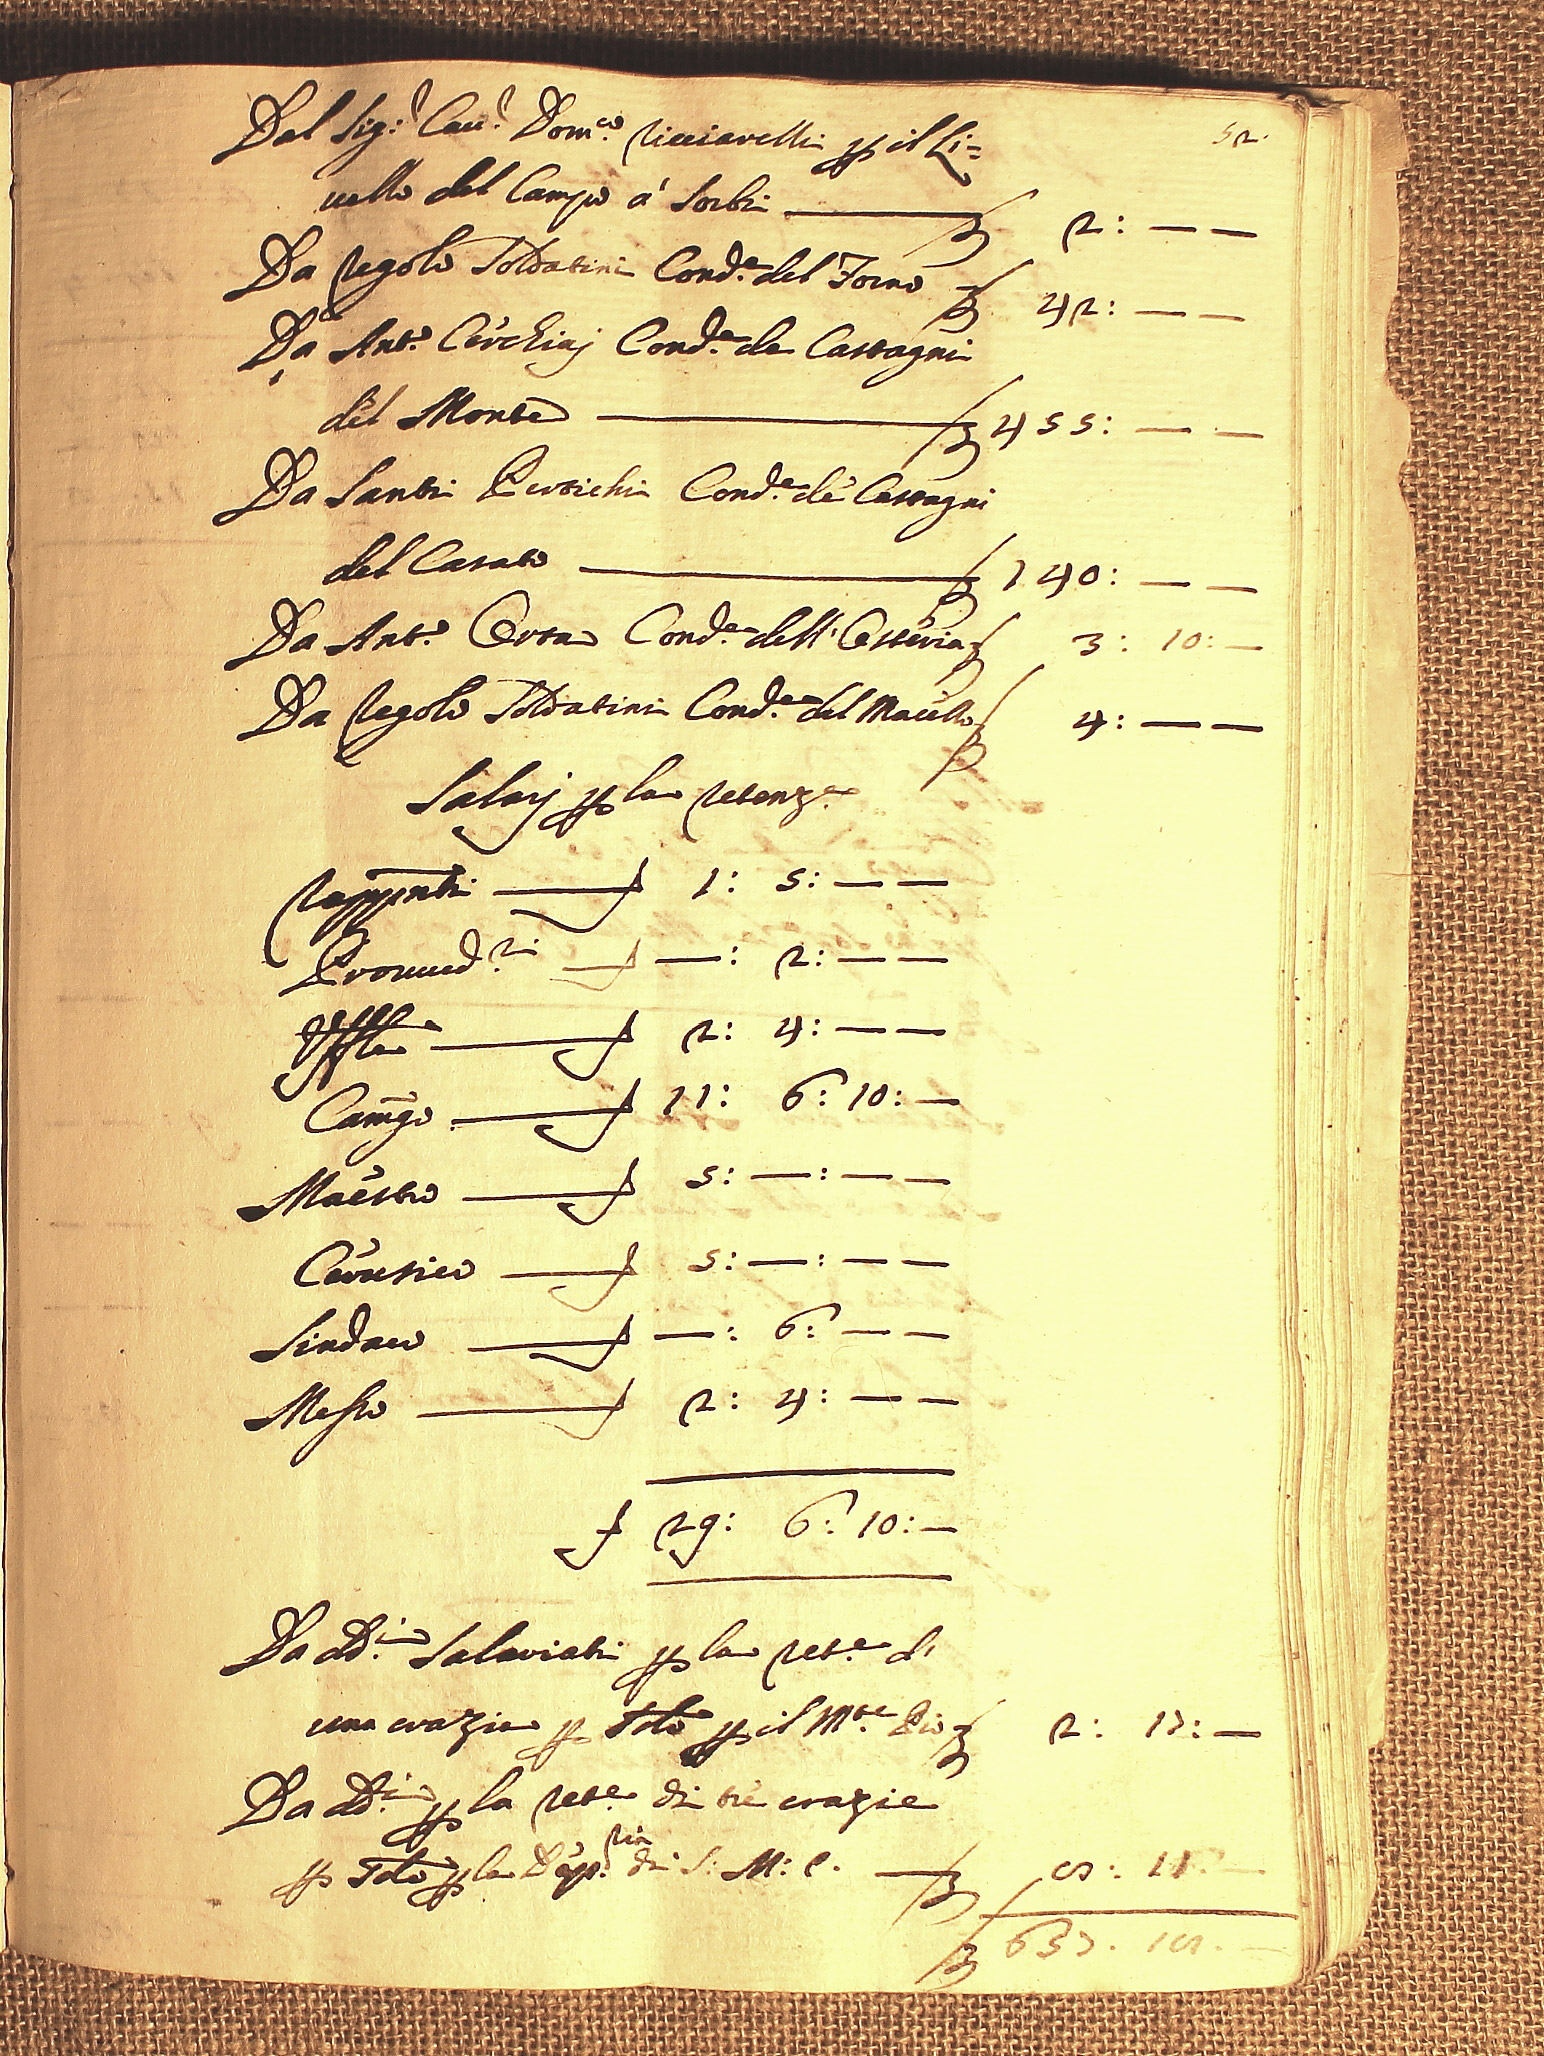 52.
Dal Sig.r Cau.r Dom.co Ricciarelli p il Li=
uello del Campo à Sorbi — 2: — —
Da Regolo Soldatini Cond.e del Forno 42: — —
Da Ant.o Cerchiaj Cond.e de Castagni
del Monte — 455: — —
Da Santi Pertichi Cond.e de Castagni
del Casato — 140: — —
Da Ant.o Orta Cond.e dell'Osteria 3: 10: —
Da Regolo Soldatini Cond.e del Macello 4: — —
Salarj p la retenz.e
Rappnti — 1: 5: — —
Prouued.ri — —: 2: — —
— 2: 4: — —
Camgo — 11: 6: 10: —
Maestro — 5: —: — —
Cerusico — 5: —: — —
Sindaco — —: 6: — —
Messo — 2: 4: — —
29: 6: 10: —
Da dd.i Salariati p la ret.e di
una crazia p p il M.te Pio 2: 17: —
Da dd.i p la ret.e di tre crazie
p p la di S: M: C. — 8: 11: —
637. 18. —